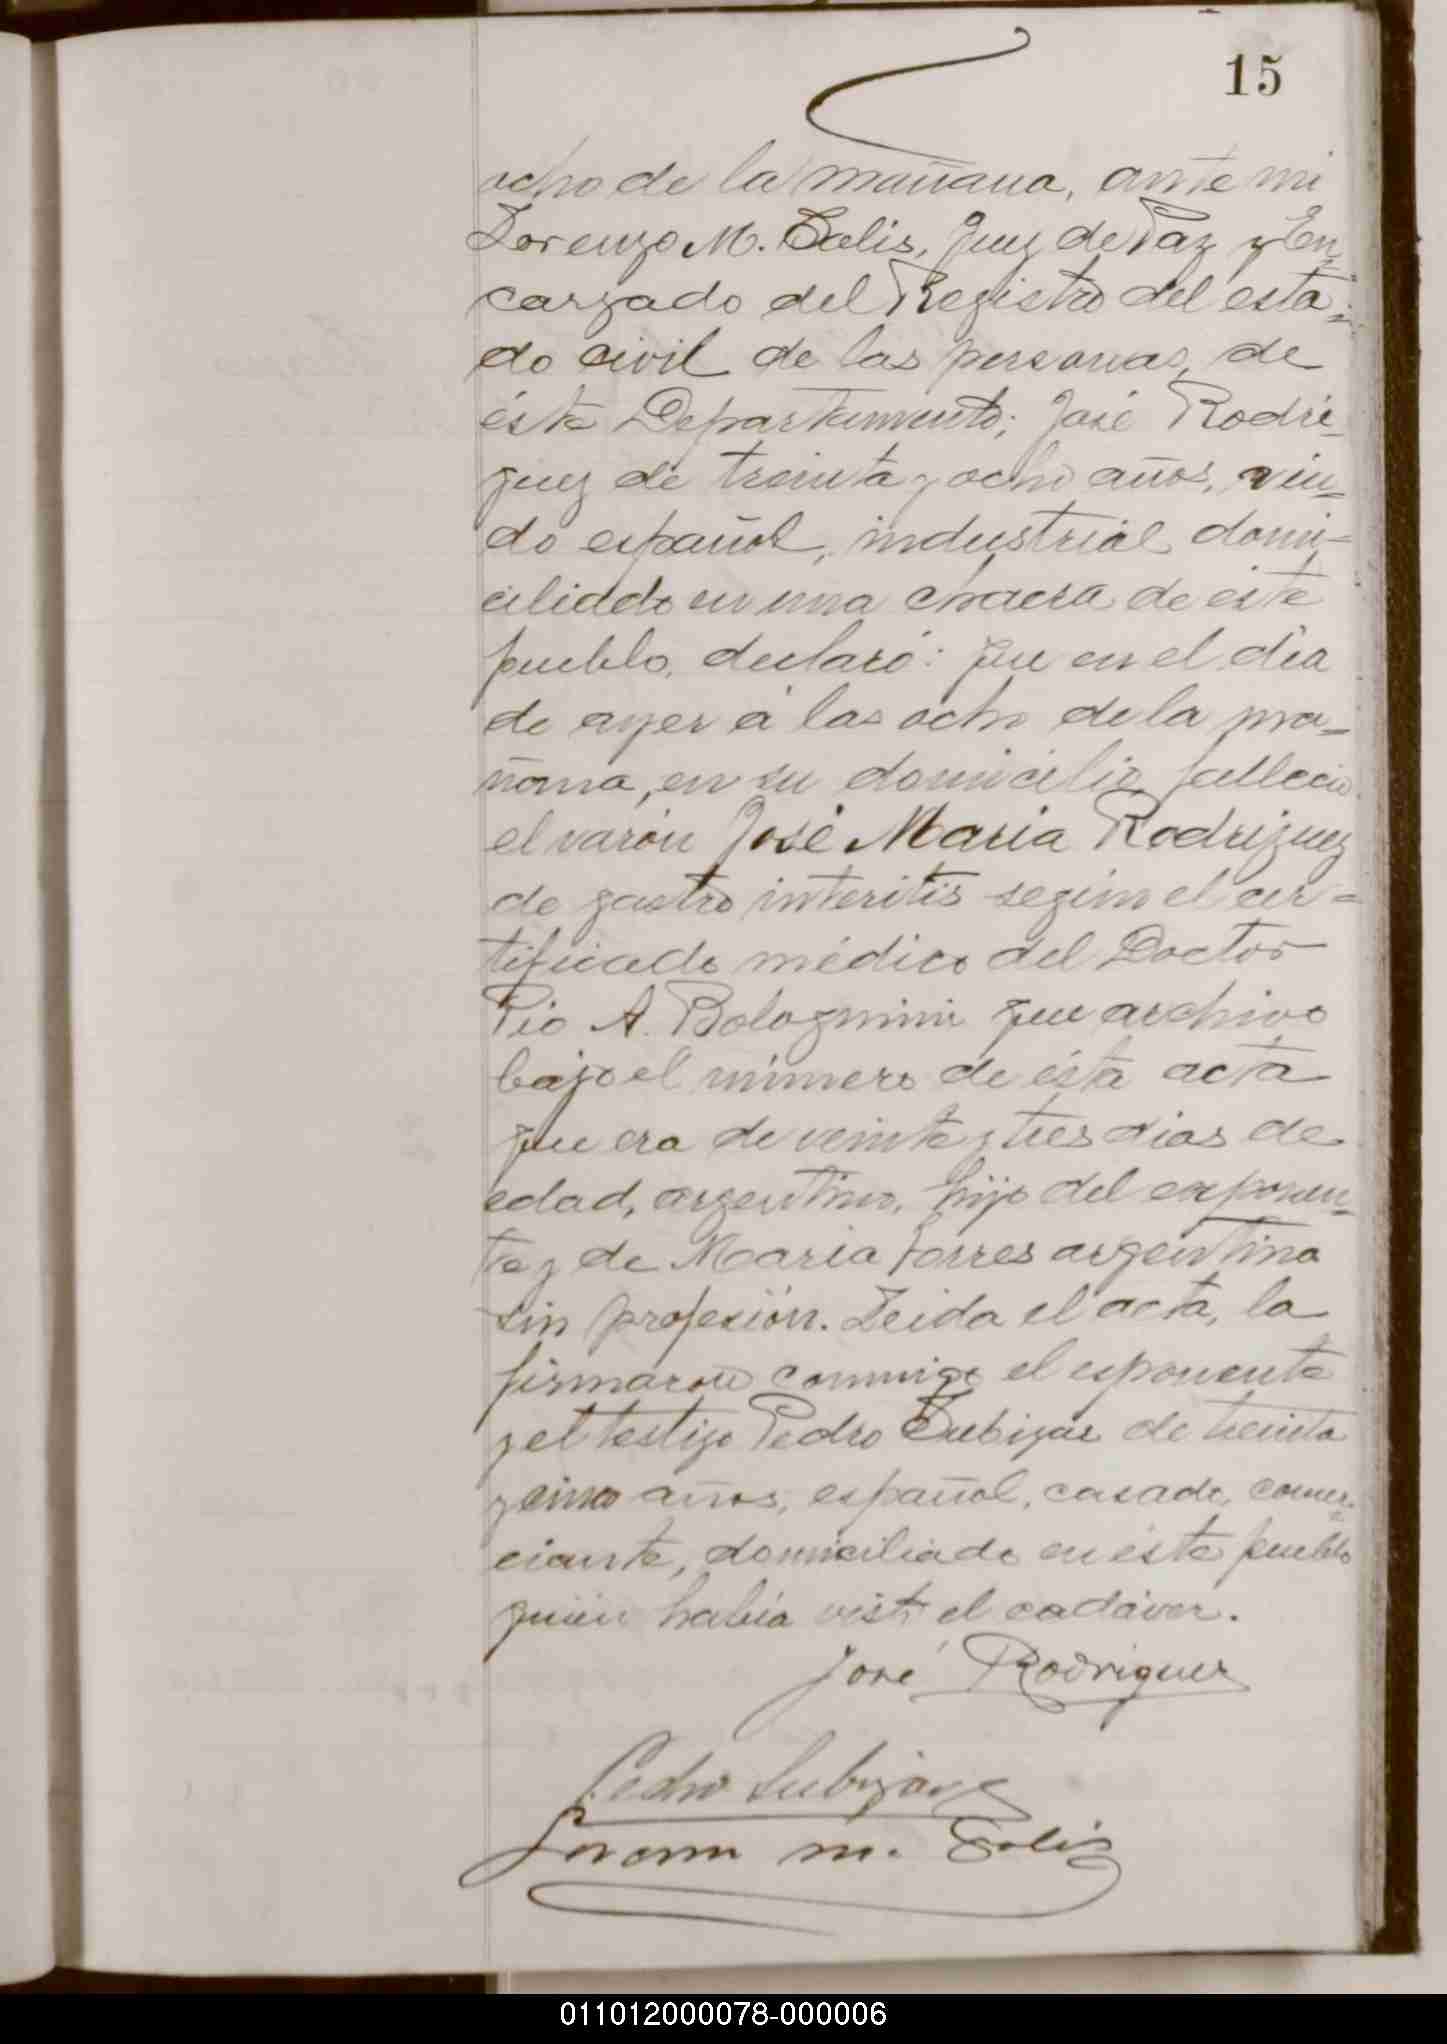 15
ocho de la mañana, ante mi
Lorenzo M. Solis, Juez de Paz y En
cargado del Registro del esta-
do civil de las personas, de
éste Departamento; José Rodri-
guez de treinta y ocho años, viu-
do español, industrial, domi-
ciliado en una chacra de éste
pueblo, declaró: que en el dia
de ayer á las ocho de la ma-
ñana, en su domicilio, falleció
el varón José Maria Rodriguez
de gastro interitis según el cer-
tificado médico del Doctor
Pio A. Bolognini que archivo
bajo el número de ésta acta
que era de veinte y tres dias de
edad, argentino, hijo del exponen-
te y de Maria Torres argentina
sin profesión. Leida el acta, la
firmaron conmigo el esponente
y el testigo Pedro Zubizar de treinta
y cinco años, español, casado, comer-
ciante, domiciliado en éste pueblo
quien había visto el cadáver.
José Rodriguez
Pedro
Lorenzo M. Solis
011012000078-000006